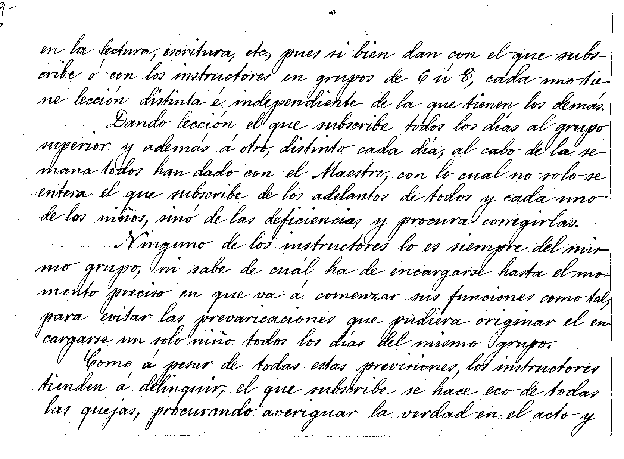 en la lectura, escritura, etc, pues si bien dan con el que subs-
cribe ó con los instructores en grupos de 6 ú 8, cada uno tie-
ne lección distinta é independiente de la que tienen los demás.
Dando lección el que subscribe todos los días al grupo
superior y además a otro, distinto cada día, al cabo de la se-
mana todos han dado con el Maestro, con lo cual no solo se
entera el que subscribe de los adelantos de todos y cada uno
de los niños, sinó de las deficiencias, y procura corregirlas.
Ninguno de los instructores lo es siempre del mis-
mo grupo, ni sabe de cuál ha de encargara hasta el mo-
mento preciso en que va á comenzar sus funciones como tal,
para evitar las prevaricaciones que pudiera originar el en-
cargarse un solo niño todos los días del mismo grupo.
Como á pesar de todas estas previsiones, los instructores
tienden á delinquir, el que subscribe se hace eco de todas
las quejas, procurando averiguar la verdad en el acto y